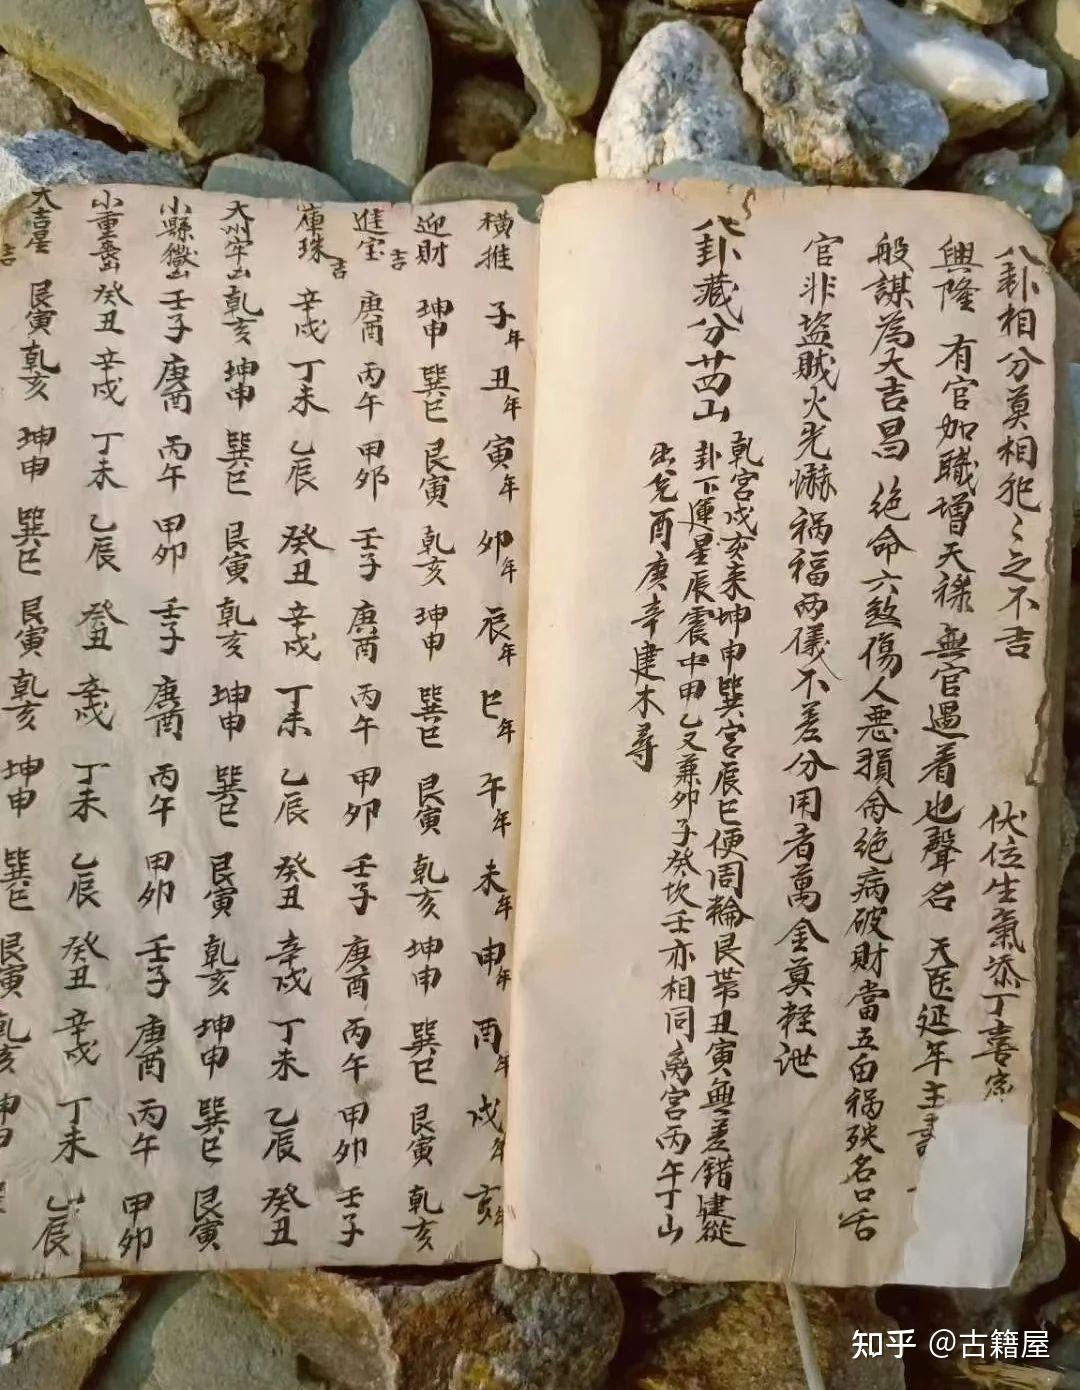 八卦相分莫相犯〻之不吉 伏位生氣添丁喜
興隆 有官加職增天祿 無官遇着也聲名 天医延年主
般謀為大吉昌 絶命六煞傷人悪損 絶病破財當五由禍殃名口舌
官非盜賊火光嚇 祸福两儀不差分 用者萬金莫轻泄
八卦藏分廿四山
乾宮戌亥未坤申巽宮辰巳便周輪艮帶丑寅無差錯建從
卦下運星辰震中甲乙又兼卯子癸坎壬亦相同离宮丙午丁山
出兌酉庚辛建木尋
橫推 子年 丑年 寅年 卯年 辰年 巳年 午年 未年 申年 酉年 戌年 亥年
迎財 吉 坤申 巽巳 艮寅 乾亥 坤申 巽巳 艮寅 乾亥 坤申 巽巳 艮寅 乾亥
進宝 庚酉 丙午 甲卯 壬子 庚酉 丙午 甲卯 壬子 庚酉 丙午 甲卯 壬子
庫珠 吉 辛戌 丁未 乙辰 癸丑 辛戌 丁未 乙辰 癸丑 辛戌 丁未 乙辰 癸丑
大州牢山 乾亥 坤申 巽巳 艮寅 乾亥 坤申 巽巳 艮寅 乾亥 坤申 巽巳 艮寅
小縣獄山 壬子 庚酉 丙午 甲卯 壬子 庚酉 丙午 甲卯 壬子 庚酉 丙午 甲卯
小重喪山 癸丑 辛戌 丁未 乙辰 癸丑 辛戌 丁未 乙辰 癸丑 辛戌 丁未 乙辰
大吉星 吉 艮寅 乾亥 坤申 巽巳 艮寅 乾亥 坤申 巽巳 艮寅 乾亥 坤申
知乎 @古籍屋